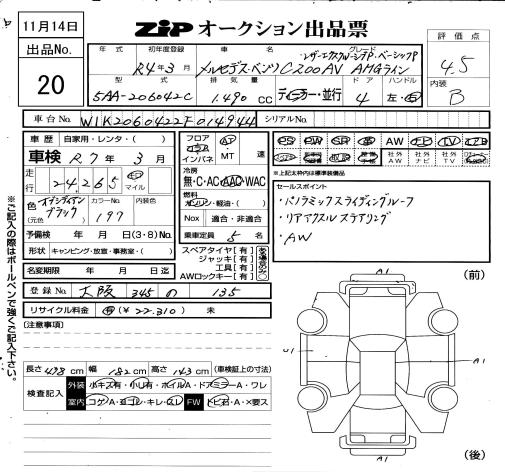 11月14日
出品No.
20
ZIP オークション出品票
評価点
4.5
内装
B
年式
初年度登録
R4年3月
車名
メルセデス・ベンツ C200AV AMGライン
グレード
レザーエクスクルーシブP・ベーシックP
型式
5AA-206042C
排気量
1.490 CC
ディーラー・並行
ドア
4
左・右
車台No.
W1K2060422F014944
シリアルNo.
車歴 自家用・レンタ・( )
車検 R7年3月
走行
24,265
マイル
色
(元色)
オブシディアンブラック
カラーNo.
197
内装色
予備検 年 月 日(3・8)No.
形状 キャンピング・放壹・事務室・( )
名変期限 年 月 日迄
フロア
フロア
インパネ
AT
MT
速
冷房
無・C・AC・AAC・WAC
燃料
ガソリン・軽油・( )
Nox 適合・非適合
乗車定員 5名
スペアタイヤ [有]
ジャッキ [有]
工具 [有]
AWロックキー [有]
PS PW SR 革 AW ナビ TV エアB
社外AW 社外ナビ 社外TV
※上記太枠内は標準装備品
セールスポイント
・パノラミックスライディングルーフ
・リアアクスルステアリング
・AW
登録No. 大阪 345 の 135
リサイクル料金 有 (¥22.310) 未
(注意事項)
長さ 478 cm 幅 182 cm 高さ 143 cm (車検証上の寸法)
検査記入
外装 小キズ有・小凹有・ホイルA・ドアミラーA・ワレ
室内 コゲA・ヨゴレ・キレ・スレ FW トビ石・A・×要ス
※ご記入の際はボールペンで強くご記入下さい。
(前)
A1
A1
A1
(後)